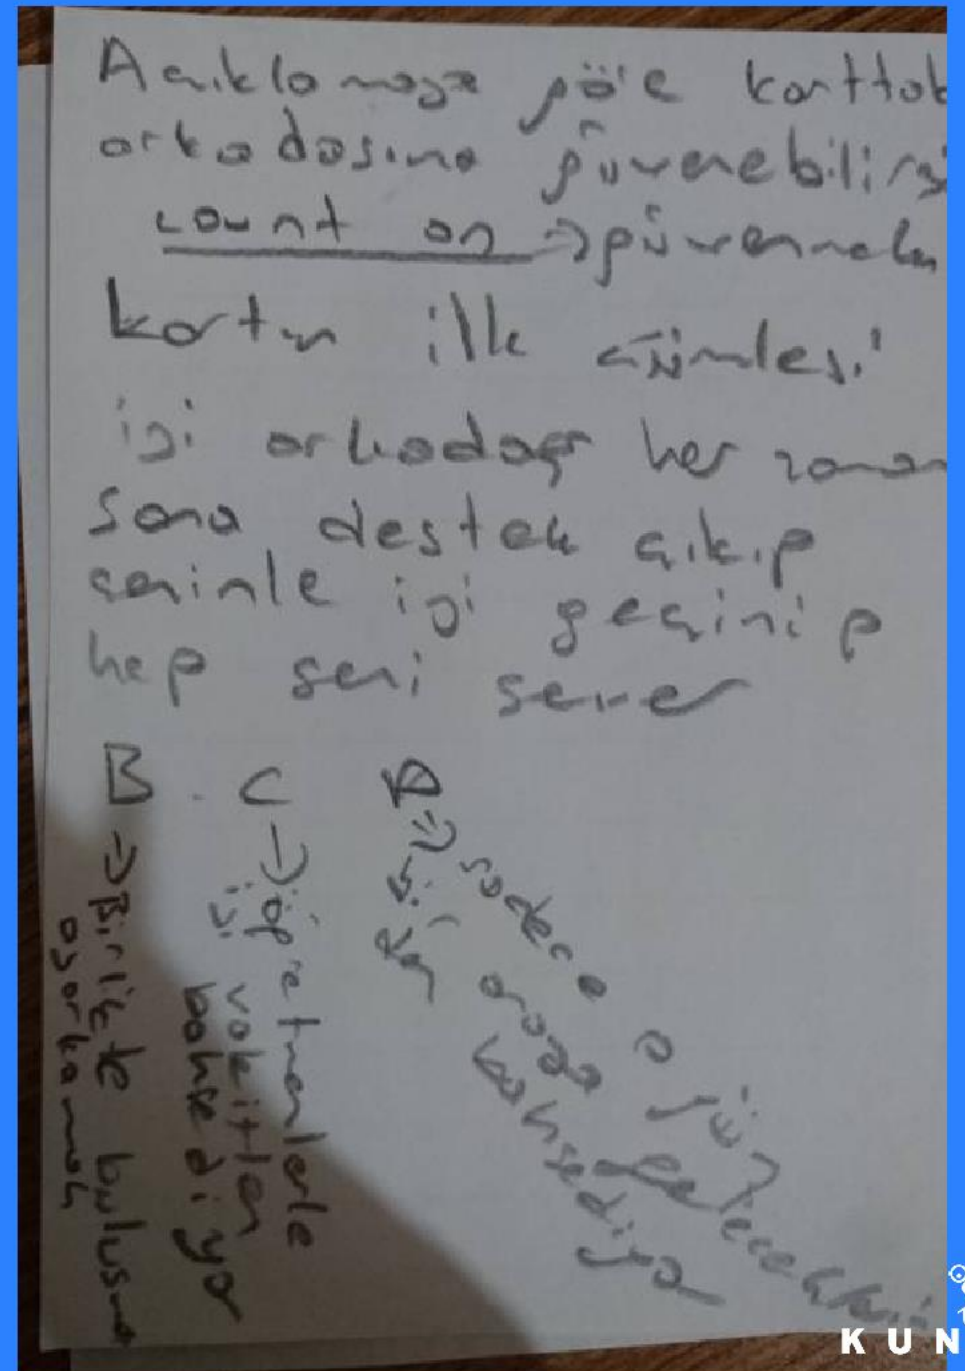 Açıklamaya göre karttak
arkadaşına güvenebilirs
count on ⇒ güvenmek
kartın ilk cümlesi
iyi arkadaş her zaman
sana destek çıkıp
seninle iyi geçinip
hep seni sever
B ⇒ Birlikte buluşma
ayarlamak
C → öğretmenlerle
iyi vakitten
bahsediyor
D ⇒ sadece o gün
bir araya geleceklerin
den bahsediyor
KUN